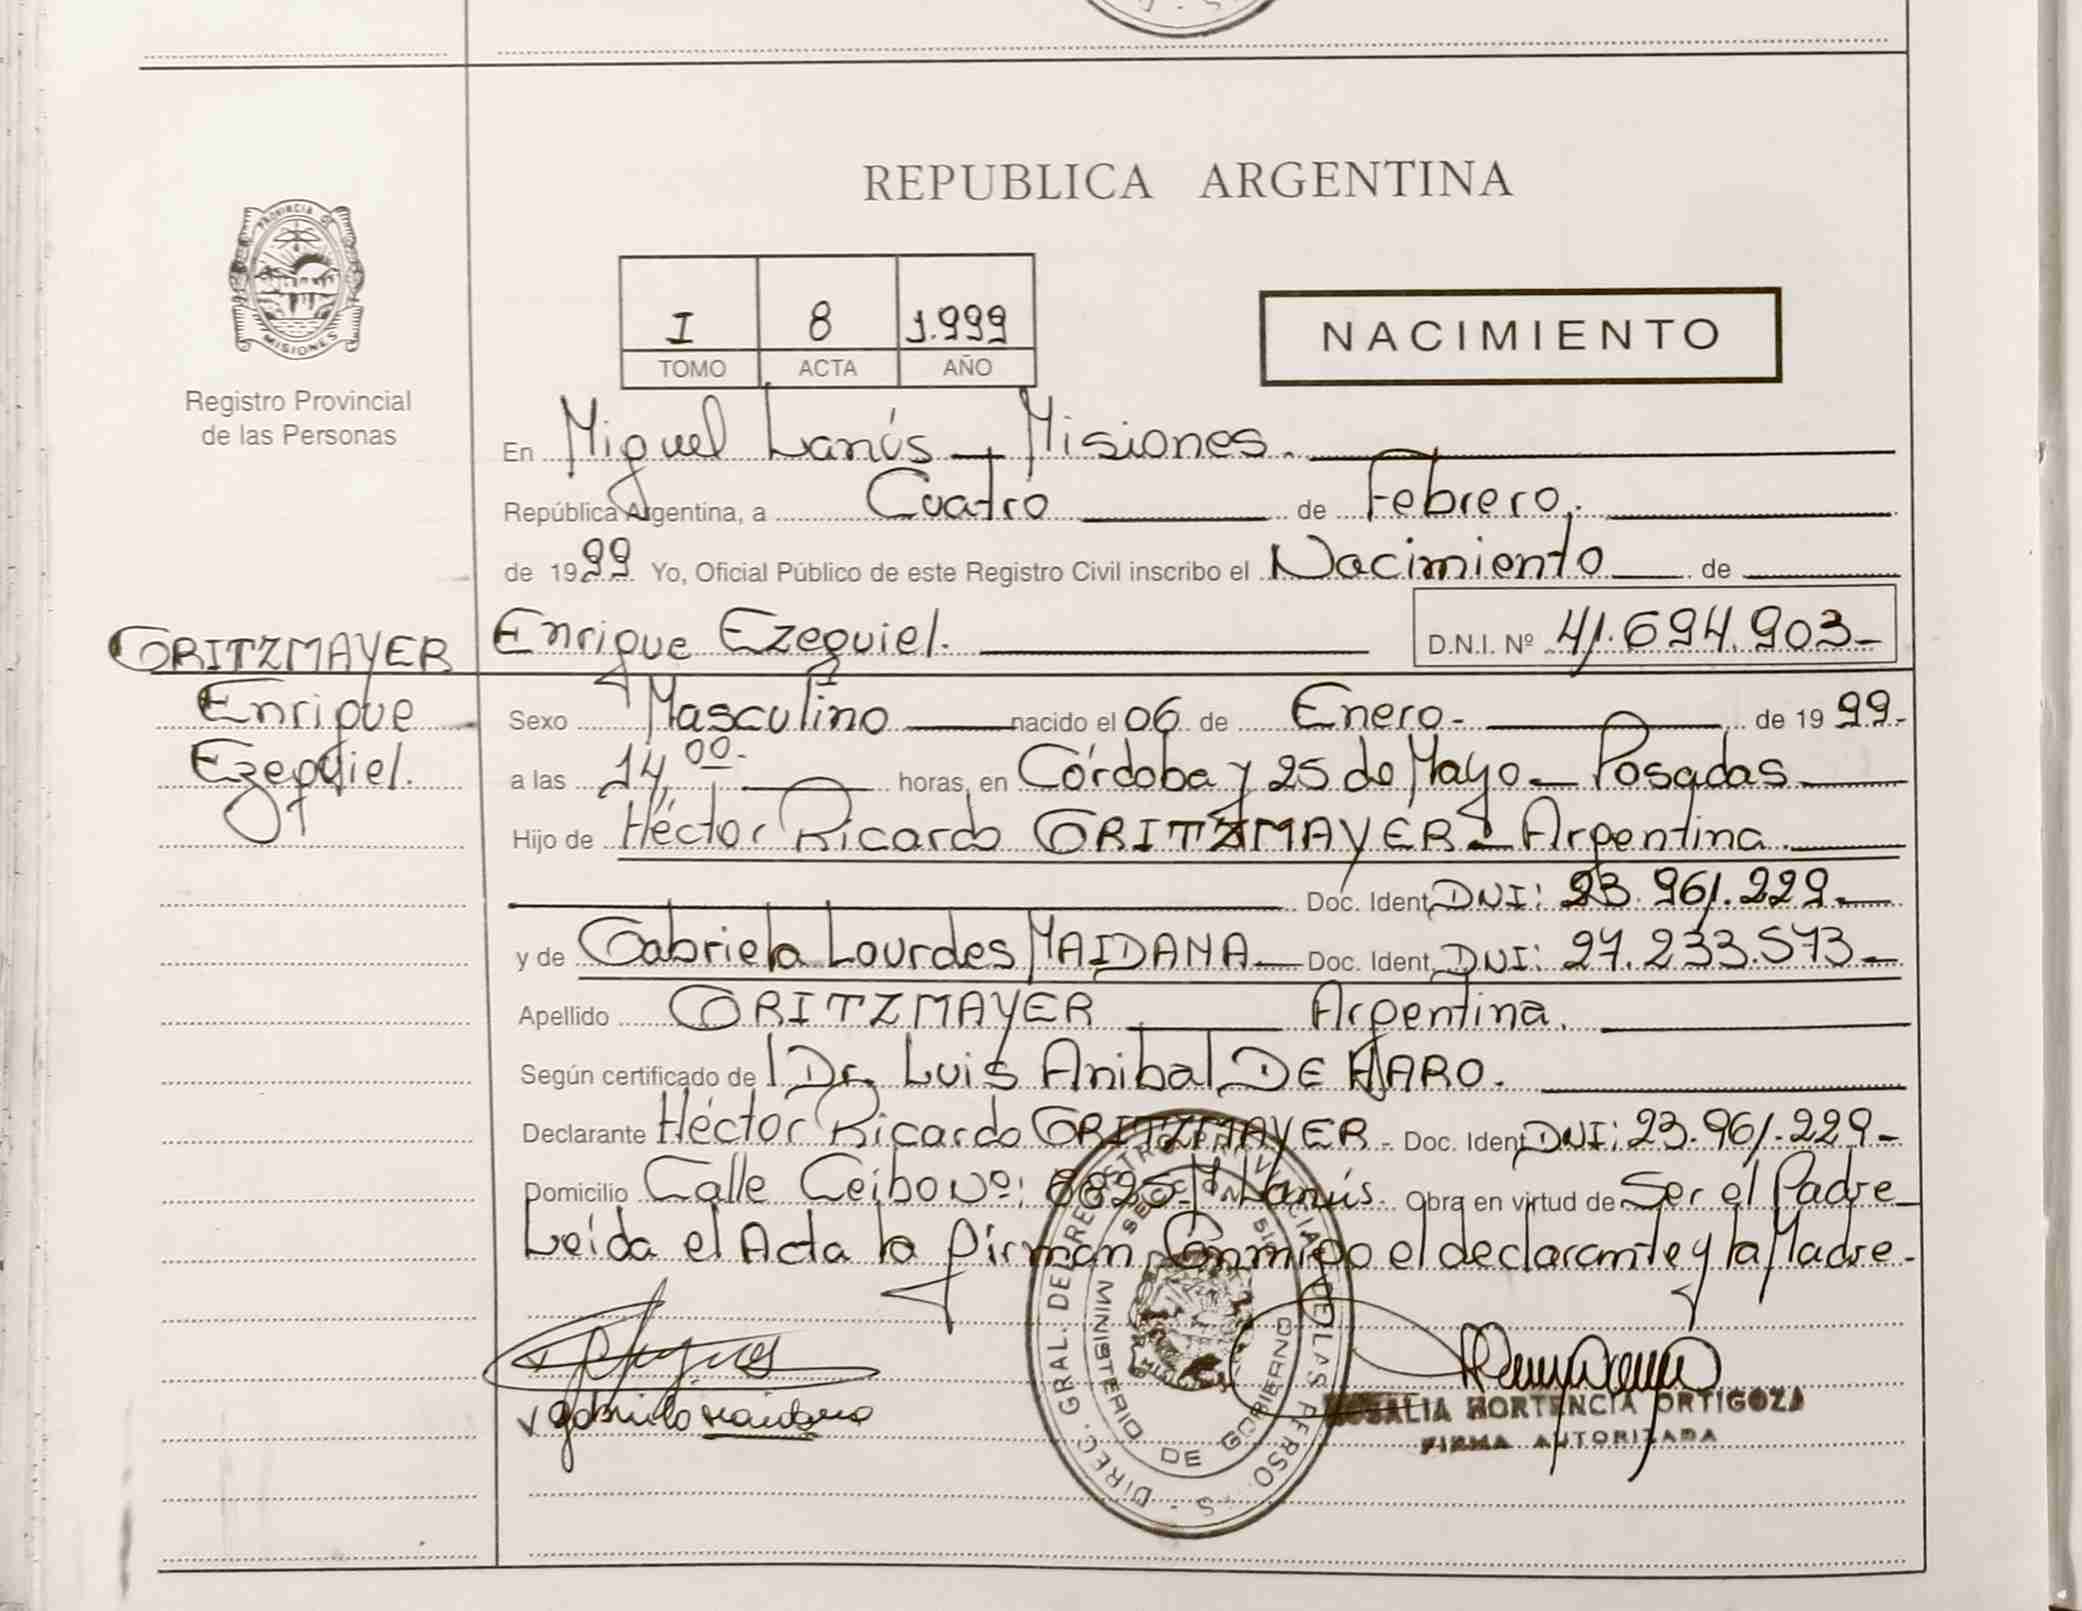 REPUBLICA ARGENTINA
PROVINCIA DE
MISIONES
Registro Provincial
de las Personas
I 8 1.999
TOMO ACTA AÑO
NACIMIENTO
En Miguel Lanús - Misiones.
República Argentina, a Cuatro de Febrero.
de 1999 Yo, Oficial Público de este Registro Civil inscribo el Nacimiento de
GRITZMAYER
Enrique
Ezequiel.
Enrique Ezequiel. D.N.I. Nº 41.694.903-
Sexo Masculino nacido el 06 de Enero- de 1999-
a las 14,00- horas, en Córdoba y 25 de Mayo- Posadas
Hijo de Héctor Ricardo GRITZMAYER - Argentina.
Doc. Ident. DNI: 23.961.229-
y de Gabriela Lourdes MAIDANA - Doc. Ident. DNI: 27.233.573-
Apellido GRITZMAYER Argentina.
Según certificado de l Dr. Luis Anibal DE HARO.
Declarante Héctor Ricardo GRITZMAYER - Doc. Ident. DNI: 23.961.229-
Domicilio Calle Ceibo Nº: Lanús. Obra en virtud de Ser el Padre
Leída el Acta la firman Conmigo el declarante y la Madre.
DIREC. GRAL. DEL REGISTRO PROVINCIAL DE LAS PERSO
MINISTERIO DE GOBIERNO
ROSALIA HORTENCIA ORTIGOZA
FIRMA AUTORIZADA